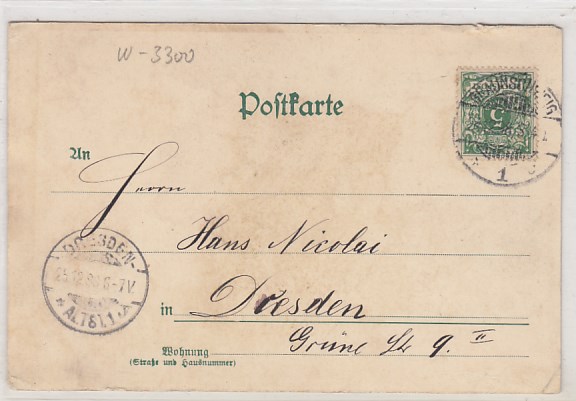 W-3300
Postkarte
5
BRAUNSCHWEIG
1
An
Herrn
Hans Nicolai
DRESDEN-
6-7V.
ALTST.1
in Dresden
Grüne Str 9. II
Wohnung
(Straße und Hausnummer)